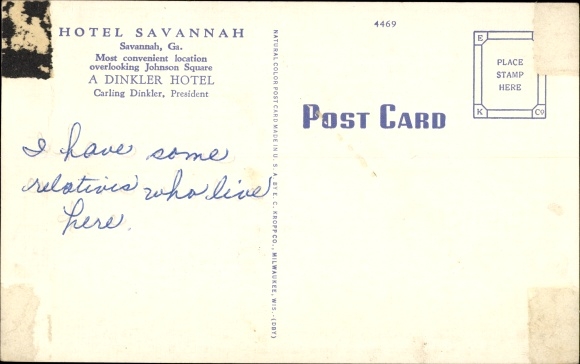 HOTEL SAVANNAH
Savannah, Ga.
Most convenient location
overlooking Johnson Square
A DINKLER HOTEL
Carling Dinkler, President
I have some
relatives who live
here.
NATURAL COLOR POST CARD MADE IN U. S. A. BY E. C. KROPP CO., MILWAUKEE, WIS.-(OBY)
4469
POST CARD
E
PLACE
STAMP
HERE
K Co